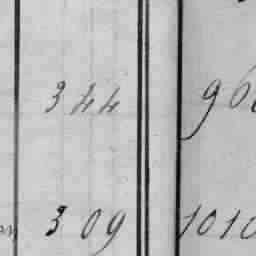 344 96
309 1010